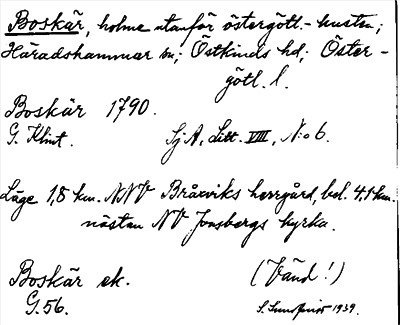 Boskär, holme utanför östergötl.-kusten;
Häradshammar sn; Östkinds hd; Öster-
götl. l.
Boskär 1790.
G. Klint. Sj A, Litt. VIII, N:o 6.
Läge 1,8 km. NNV Bråxviks herrgård, bel. 4,1 km.
nästan NV Jonsbergs kyrka.
Boskär ek. (Vänd!)
G. 56. S. 1939.